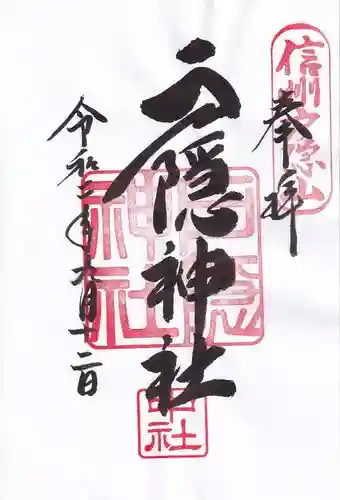 奉拝
信州戸隠山
戸隠神社
戸隠神社
中社
令和二年六月十二日